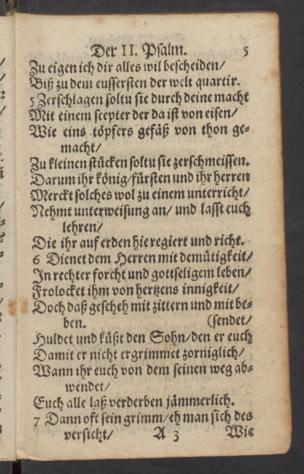 Der II. Psalm. 5
Zu eigen ich dir alles wil bescheiden/
Biß zu dem eussersten der welt quartir.
5 Zerschlagen soltu sie durch deine macht
Mit einem scepter der da ist von eisen/
Wie eins töpfers gefäß von thon ge-
macht/
Zu kleinen stücken soltu sie zerschmeissen.
Darum ihr könig/fürsten und ihr herren
Merckt solches wol zu einem unterricht/
Nehmt unterweisung an/ und lasst euch
lehren/
Die ihr auf erden hie regiert und richt.
6 Dienet dem Herren mit demütigkeit/
In rechter forcht und gottseligem leben/
Frolocket ihm von hertzens innigkeit/
Doch daß gescheh mit zittern und mit be-
ben. (sendet/
Huldet und küßt den Sohn/den er euch
Damit er nicht ergrimmet zorniglich/
Wann ihr euch von dem seinen weg ab-
wendet/
Euch alle laß verderben jämmerlich.
7 Dann oft sein grimm/eh man sich des
versicht/ A 3 Wie